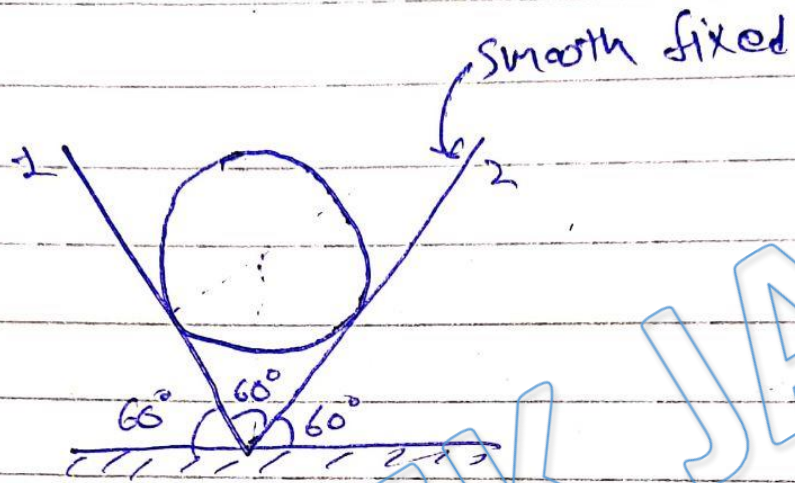 smooth fixed
1
2
60°
60° 60°
JA